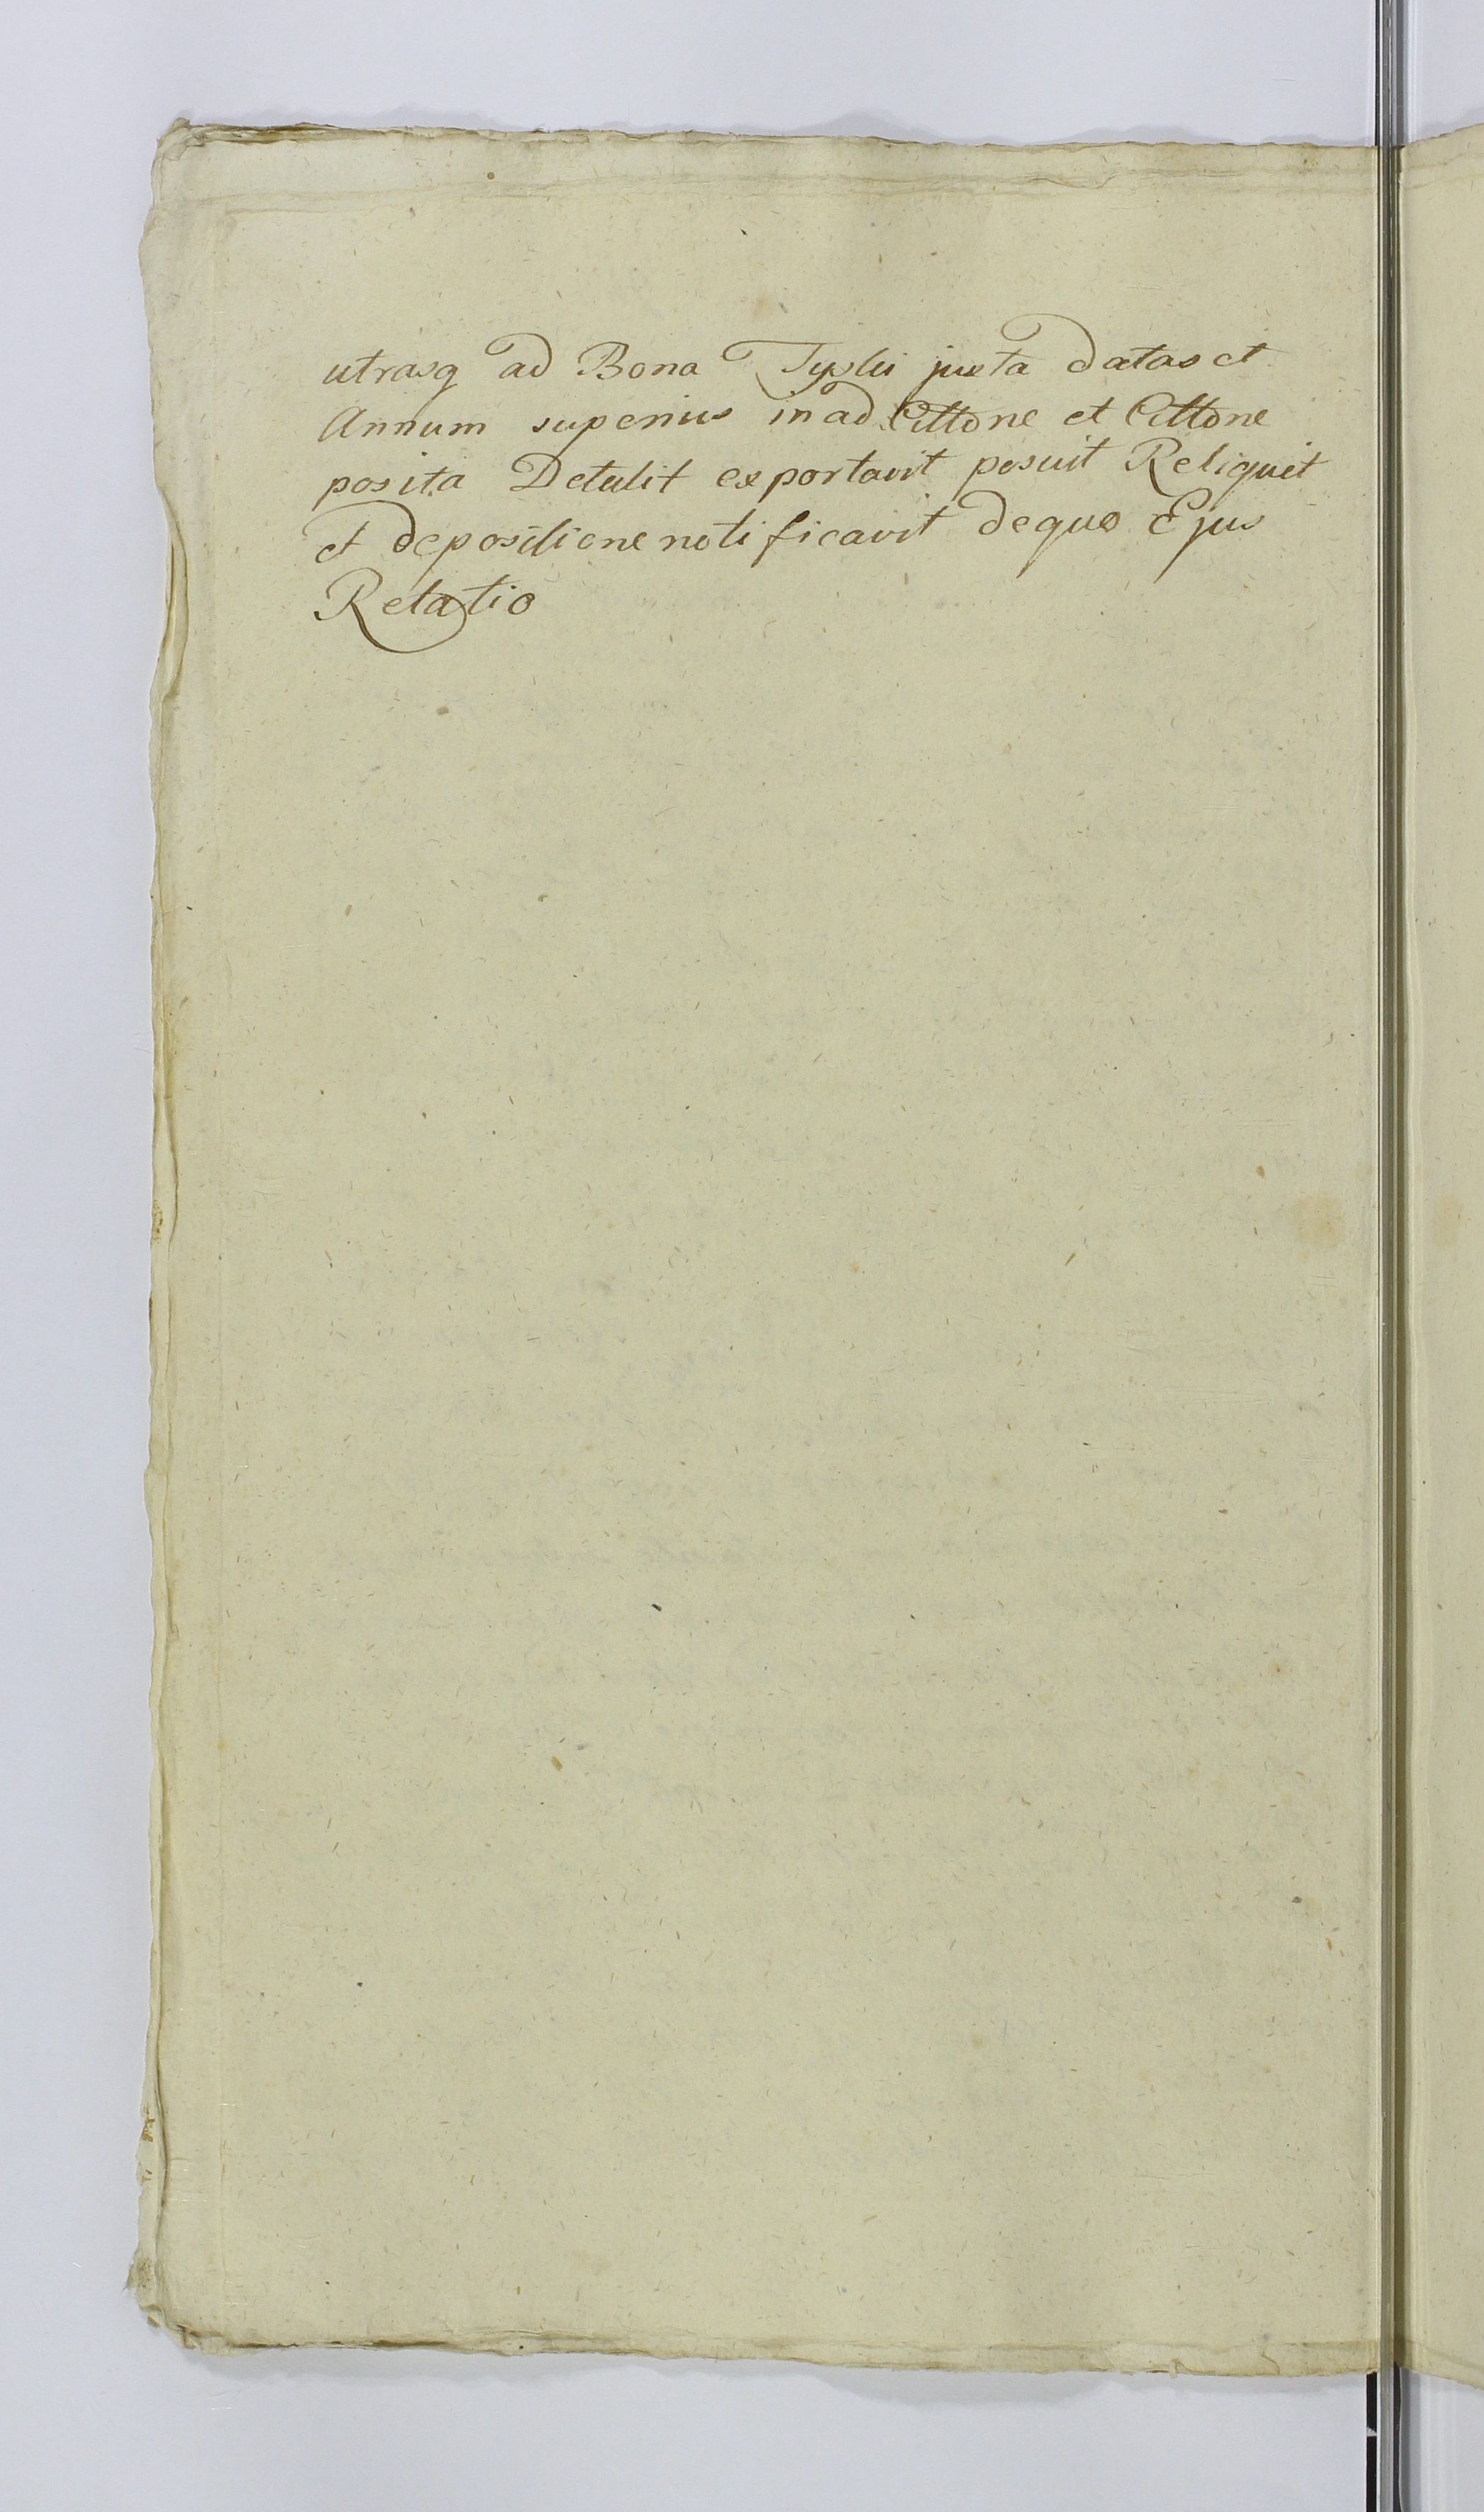 utrasq ad Bona Tysli juxta datas et
Annum superius in ad Cittone et Cittone
posita Detulit exportavit posuit Reliquit
et depositione notificavit de quo Ejus
Relatio